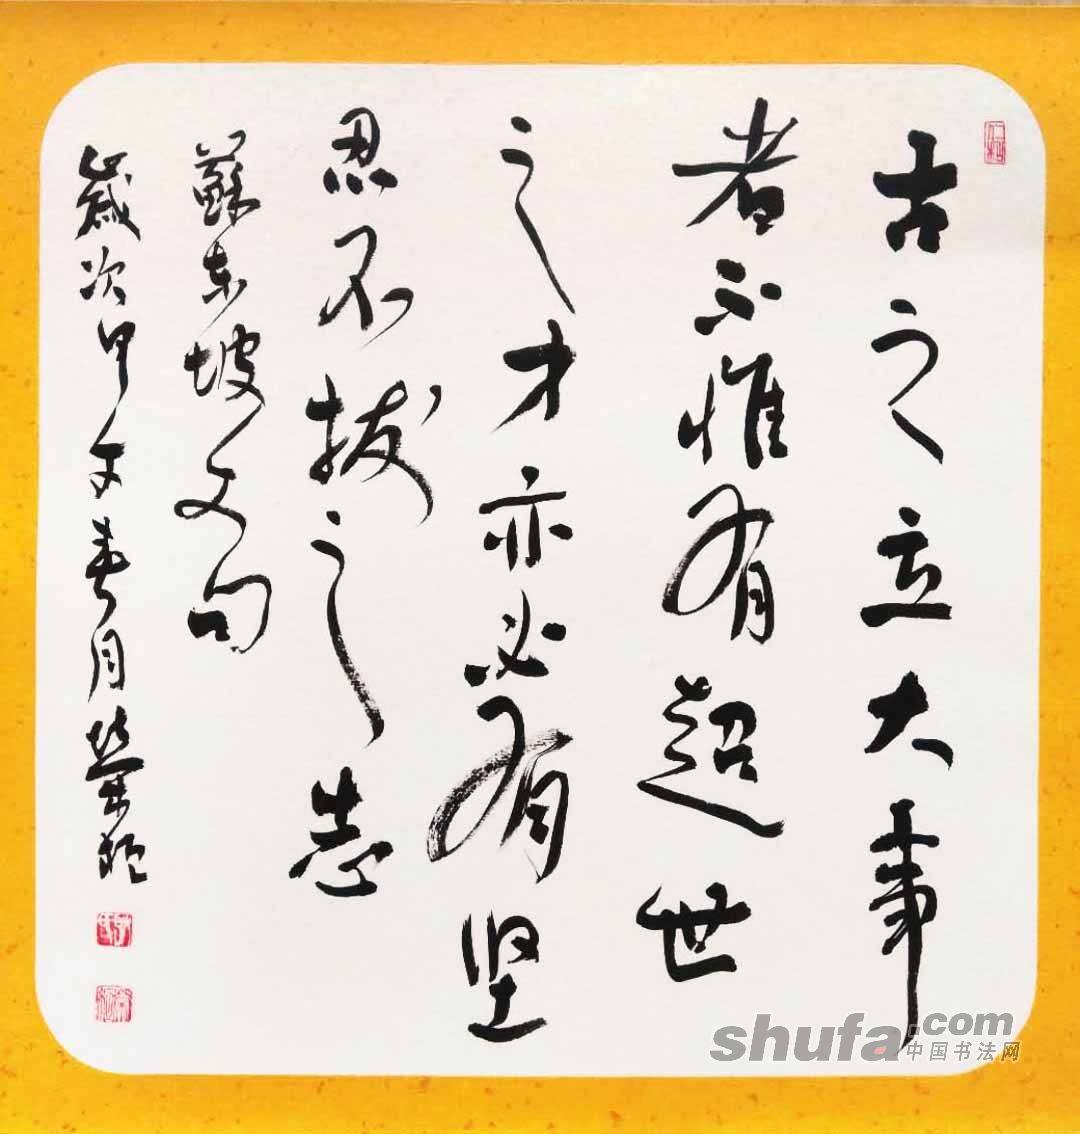 古之立大事
者不惟有超世
之才亦必有坚
忍不拔之志
蘇东坡文句
歲次甲辰春月荣桓
shufa.com
中国书法网